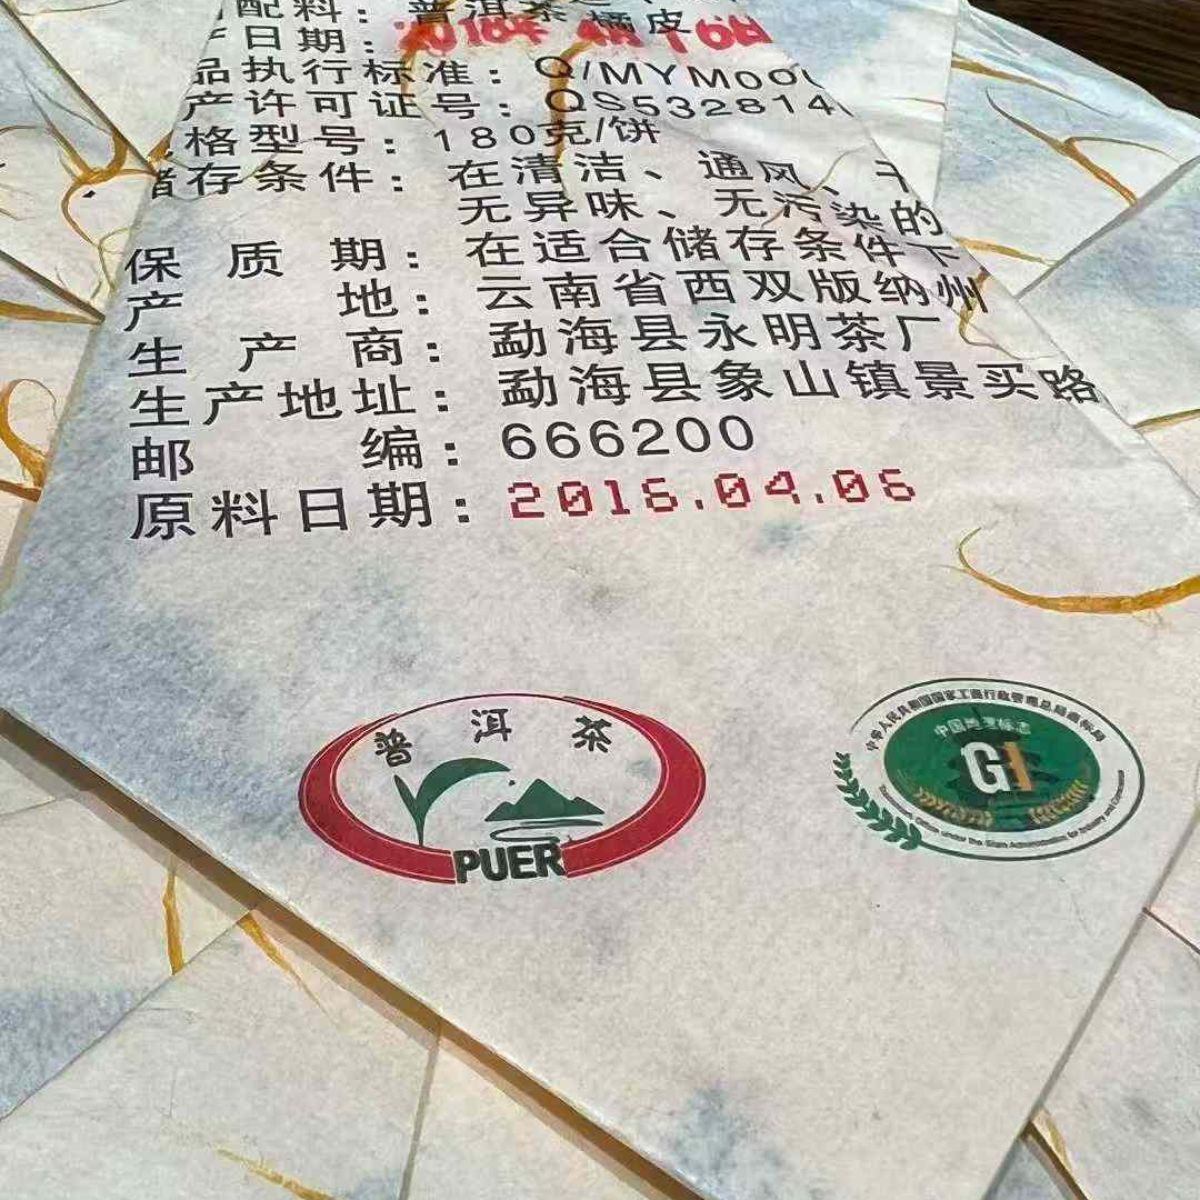 配料：普洱茶 橘皮
日期：2018年4月16日
品执行标准：Q/MYM000
产许可证号：QS5328 14
格型号：180克/饼
储存条件：在清洁、通风、干
无异味、无污染的
保质期：在适合储存条件下
产地：云南省西双版纳州
生产商：勐海县永明茶厂
生产地址：勐海县象山镇景买路
邮编：666200
原料日期：2016.04.06
普洱茶
PUER
中华人民共和国国家工商行政管理总局商标局
中国地理标志
GI